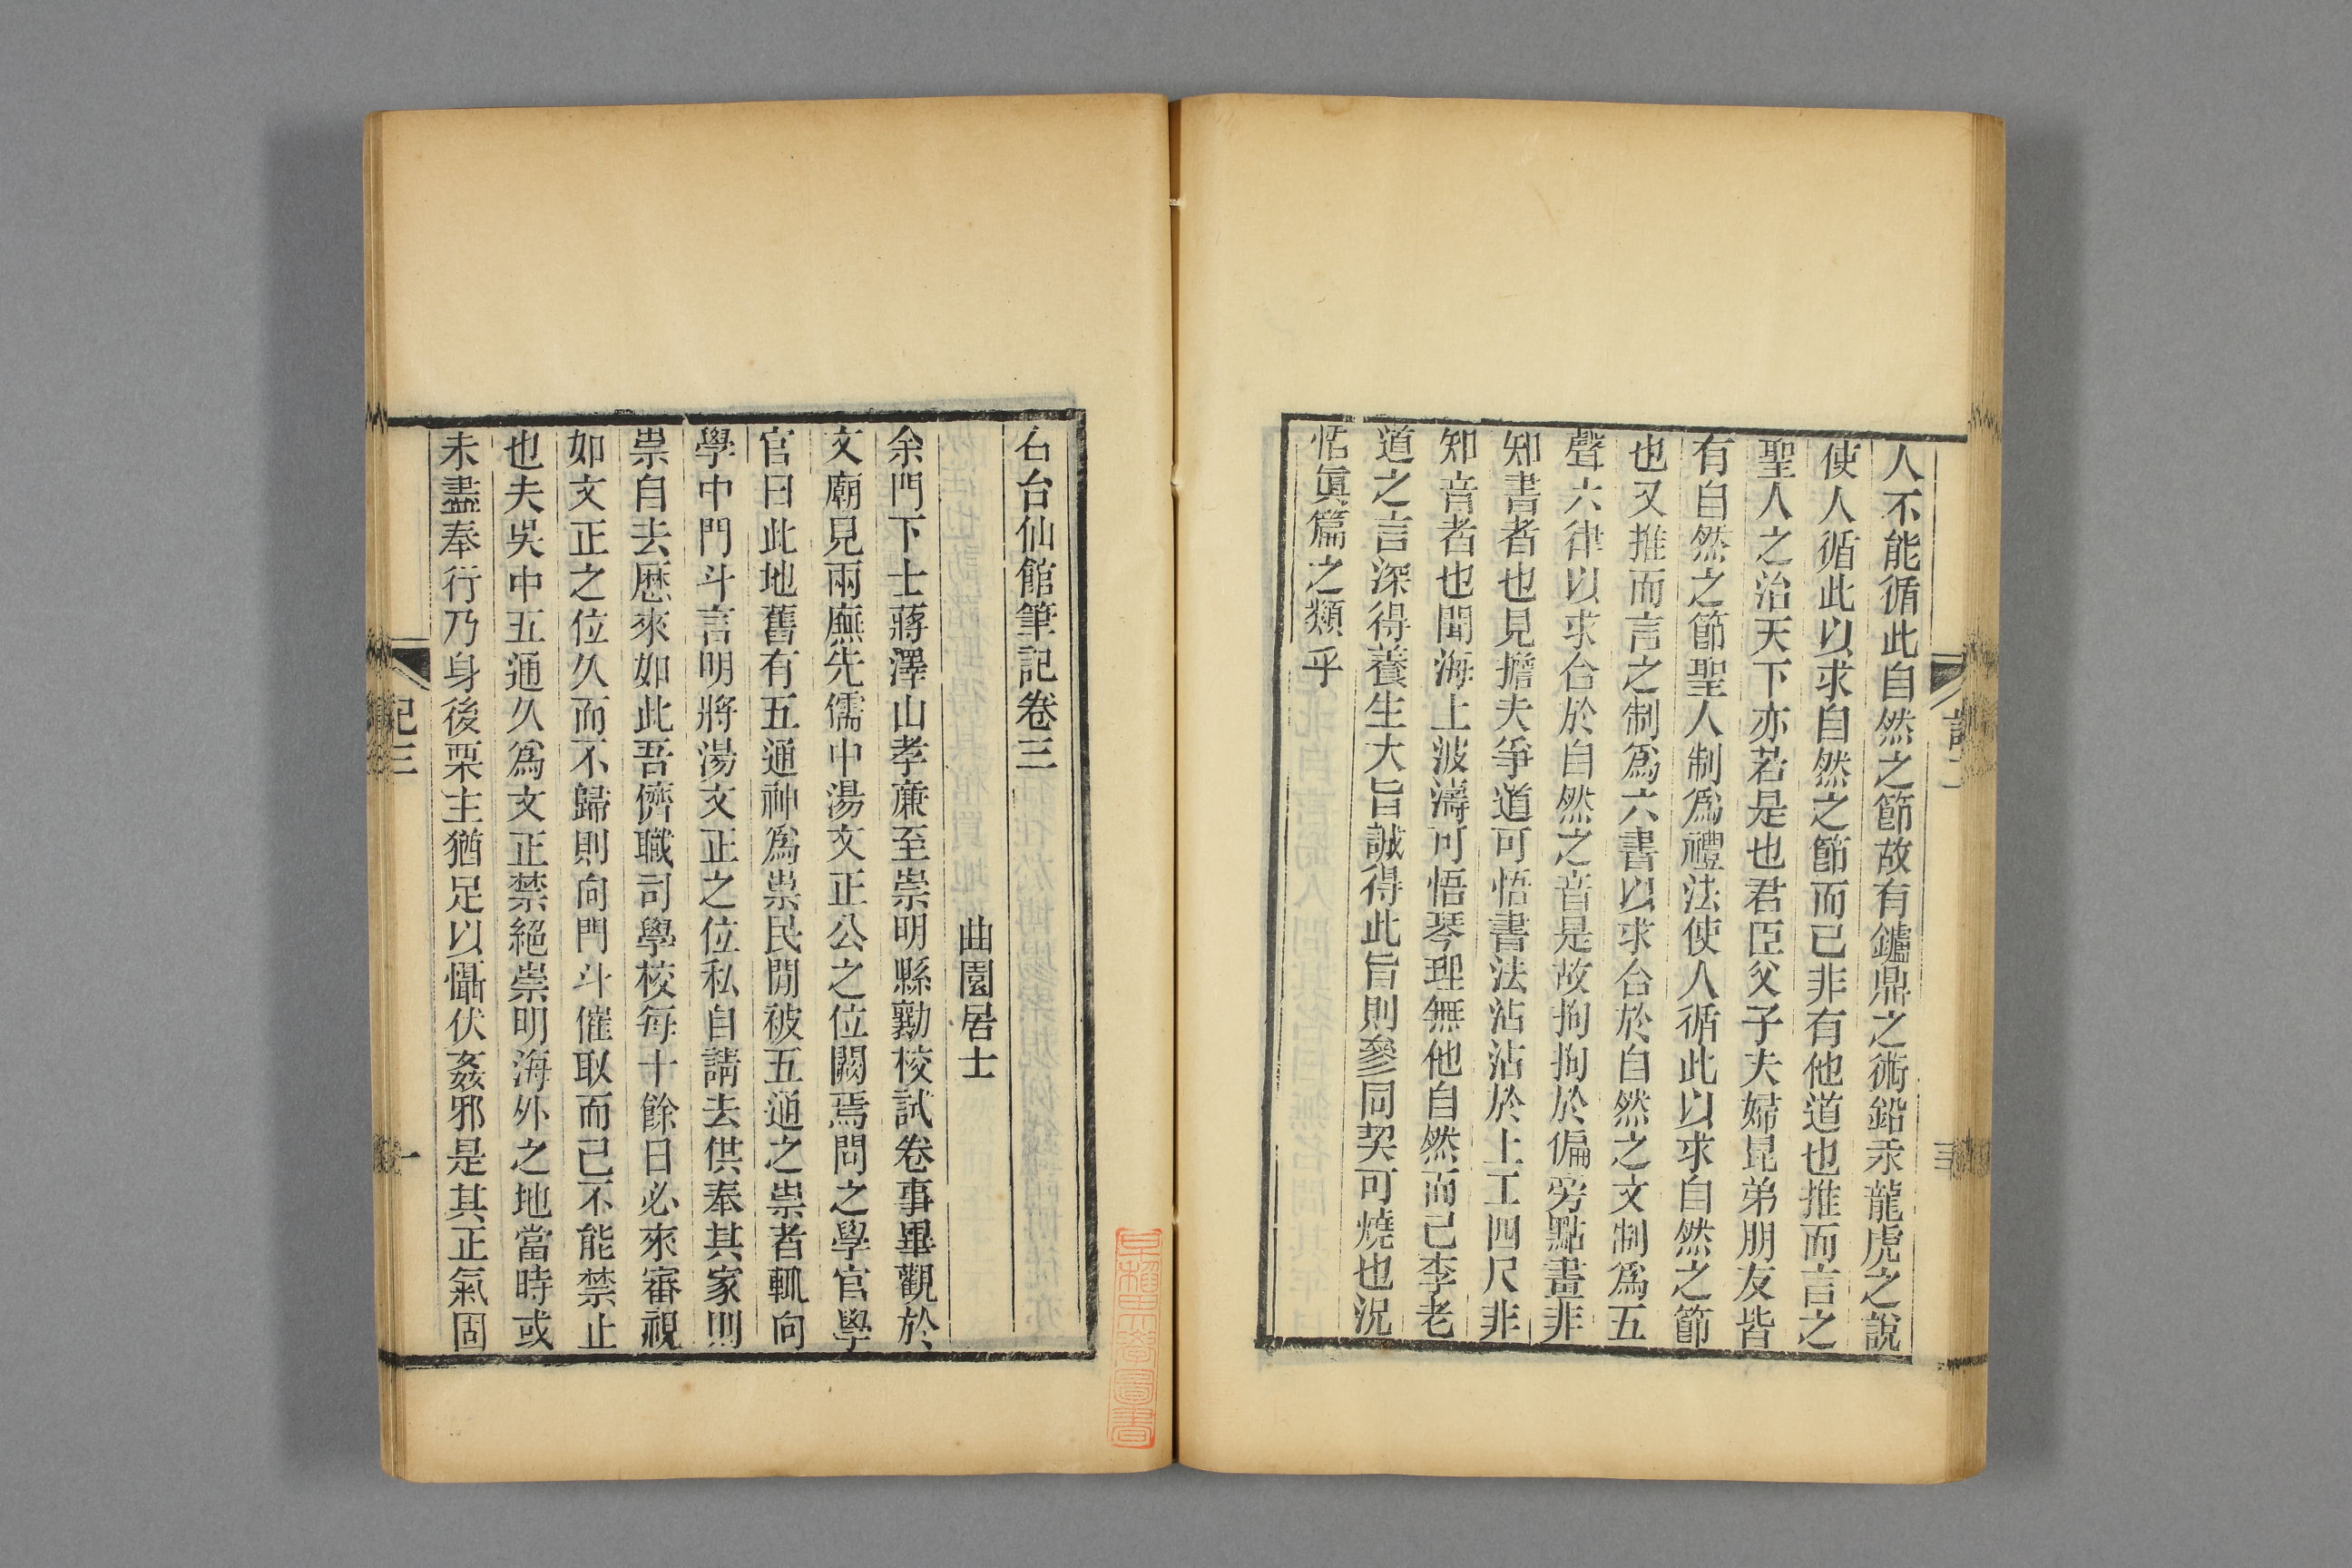 人不能循此自然之節故有鑪鼎之術鉛汞龍虎之說
使人循此以求自然之節而已非有他道也推而言之
聖人之治天下亦若是也君臣父子夫婦昆弟朋友皆
有自然之節聖人制爲禮法使人循此以求自然之節
也又推而言之制爲六書以求合於自然之文制爲五
聲六律以求合於自然之音是故拘拘於偏旁點畫非
知書者也見擔夫爭道可悟書法沾沾於上工四尺非
知音者也聞海上波濤可悟琴理無他自然而已李老
道之言深得養生大旨誠得此旨則參同契可燒也況
悟眞篇之類乎
右台仙館筆記卷三
曲園居士
余門下士蔣澤山孝廉至崇明縣勷校試卷事畢觀於
文廟見兩廡先儒中湯文正公之位闕焉問之學官學
官曰此地舊有五通神爲祟民閒被五通之祟者輒向
學中門斗言明將湯文正之位私自請去供奉其家則
祟自去歷來如此吾儕職司學校每十餘日必來審視
如文正之位久而不歸則向門斗催取而已不能禁止
也夫吳中五通久爲文正禁絕崇明海外之地當時或
未盡奉行乃身後栗主猶足以懾伏姦邪是其正氣固
記三
一